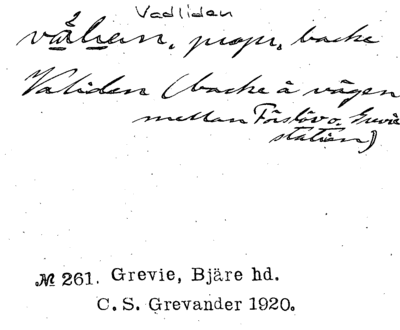 Vadliden
propr, backe
Validen (backe å vägen
mellan Förslöv o. Grevie
station)
№ 261. Grevie, Bjäre hd.
C. S. Grevander 1920.